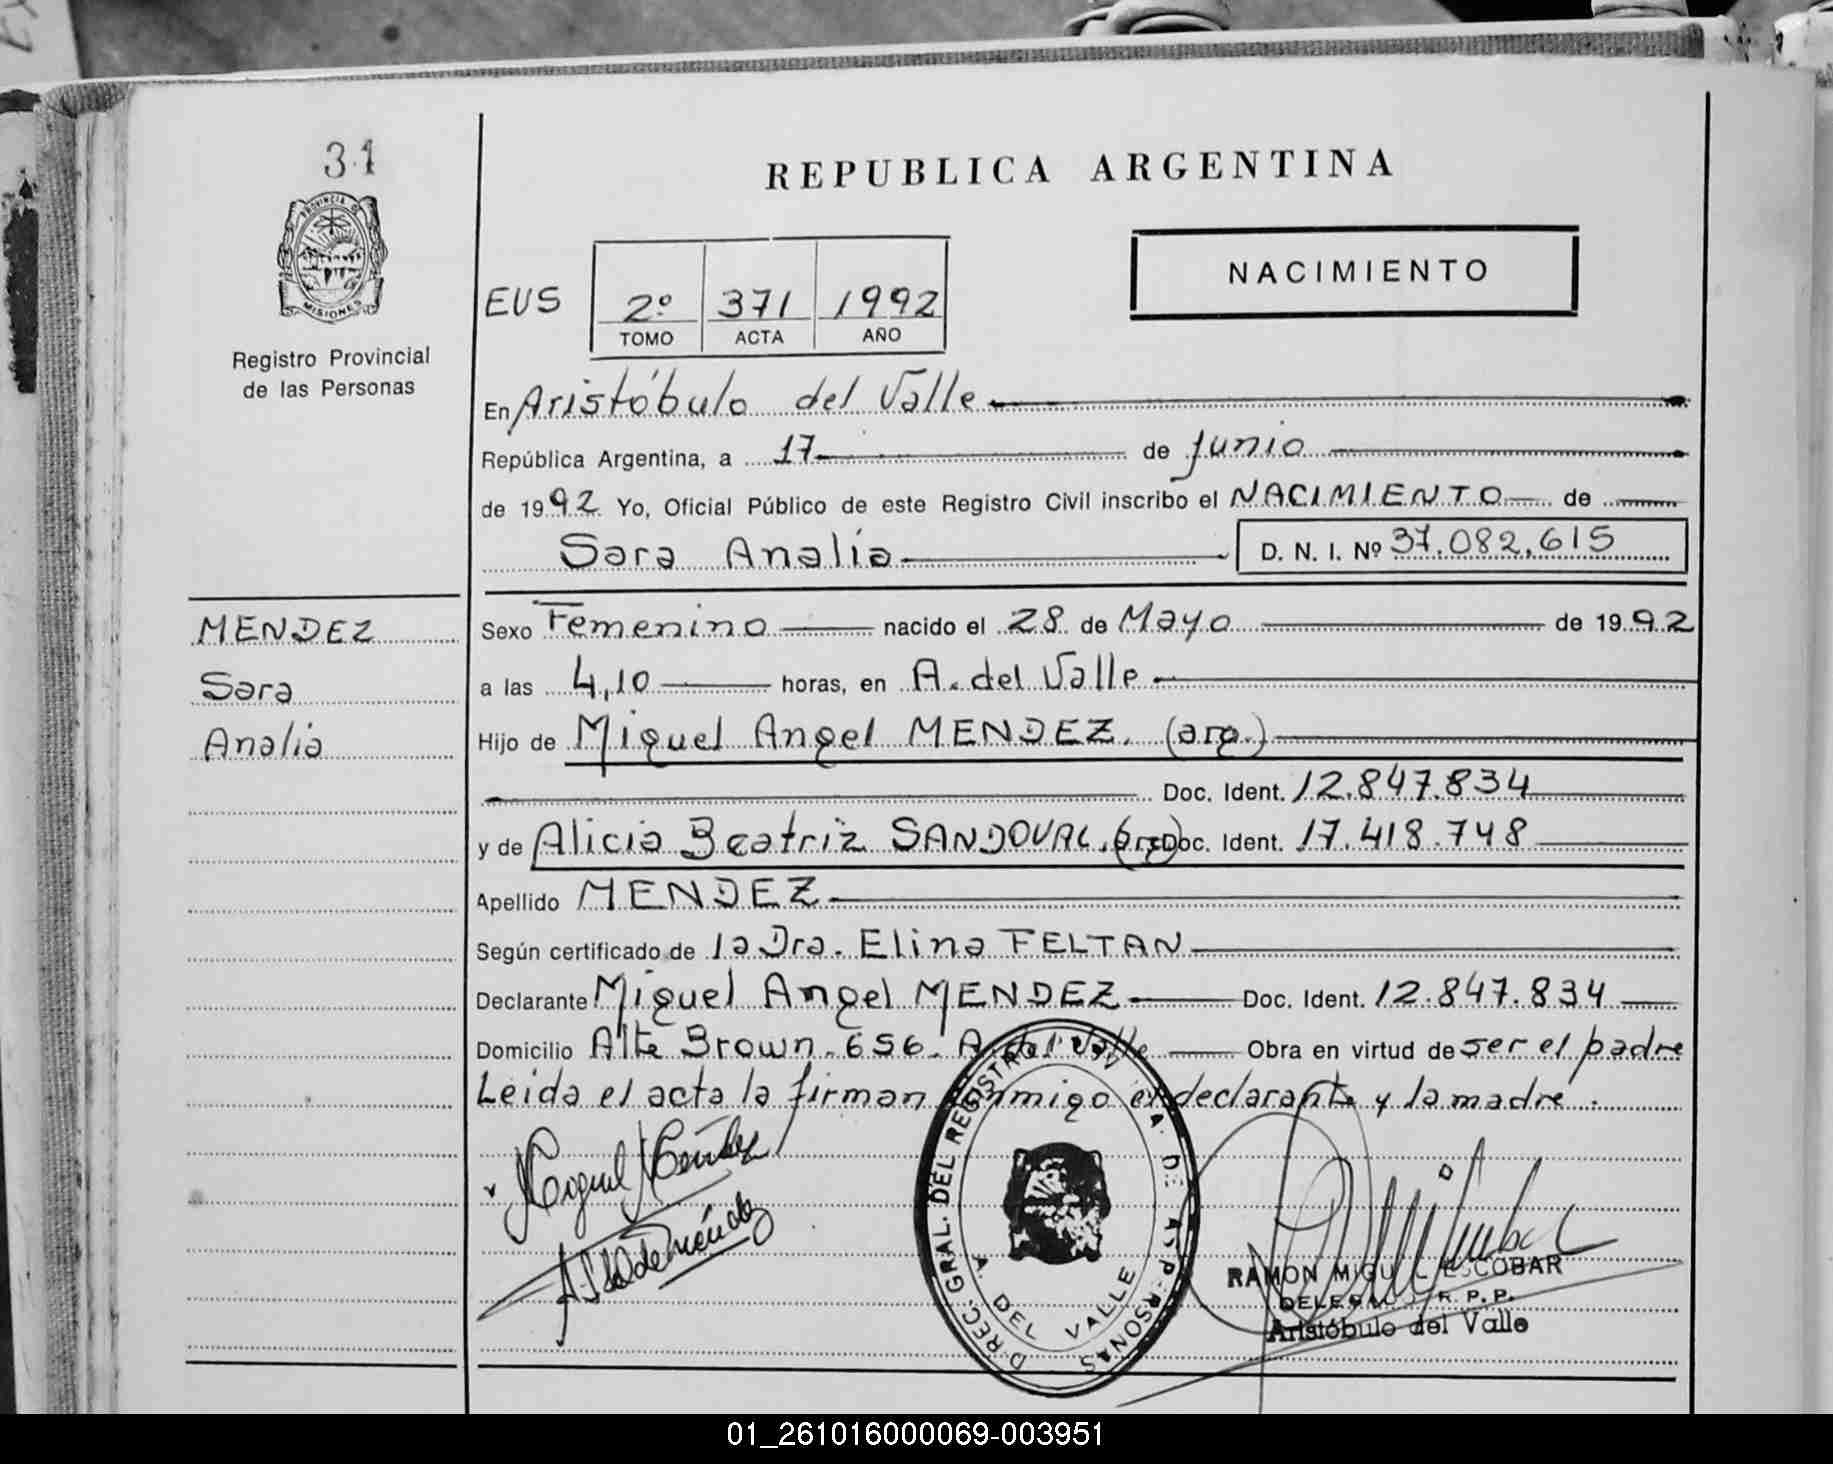 31
PROVINCIA DE
MISIONES
Registro Provincial
de las Personas
REPUBLICA ARGENTINA
NACIMIENTO
EUS 2º 371 1992
TOMO ACTA AÑO
En Aristóbulo del Valle
República Argentina, a 17 de Junio
de 1992 Yo, Oficial Público de este Registro Civil inscribo el NACIMIENTO de
Sara Analía D. N. I. Nº 37.082.615
MENDEZ
Sara
Analia
Sexo Femenino nacido el 28 de Mayo de 1992
a las 4,10 horas, en A. del Valle
Hijo de Miguel Angel MENDEZ. (arg.)
Doc. Ident. 12.847.834
y de Alicia Beatriz SANDOVAL. (arg) Doc. Ident. 17.418.748
Apellido MENDEZ
Según certificado de la Dra. Elina FELTAN
Declarante Miguel Angel MENDEZ Doc. Ident. 12.847.834
Domicilio Alte Brown. 656. A. del Valle Obra en virtud de ser el padre
Leida el acta la firman conmigo el declarante y la madre.
Miguel Mendez
REC. GRAL. DEL REGISTRO DE PERSONAS
A. DEL VALLE
RAMON MIGUEL ESCOBAR
DELEGADO R. P. P.
Aristóbulo del Valle
01_261016000069-003951